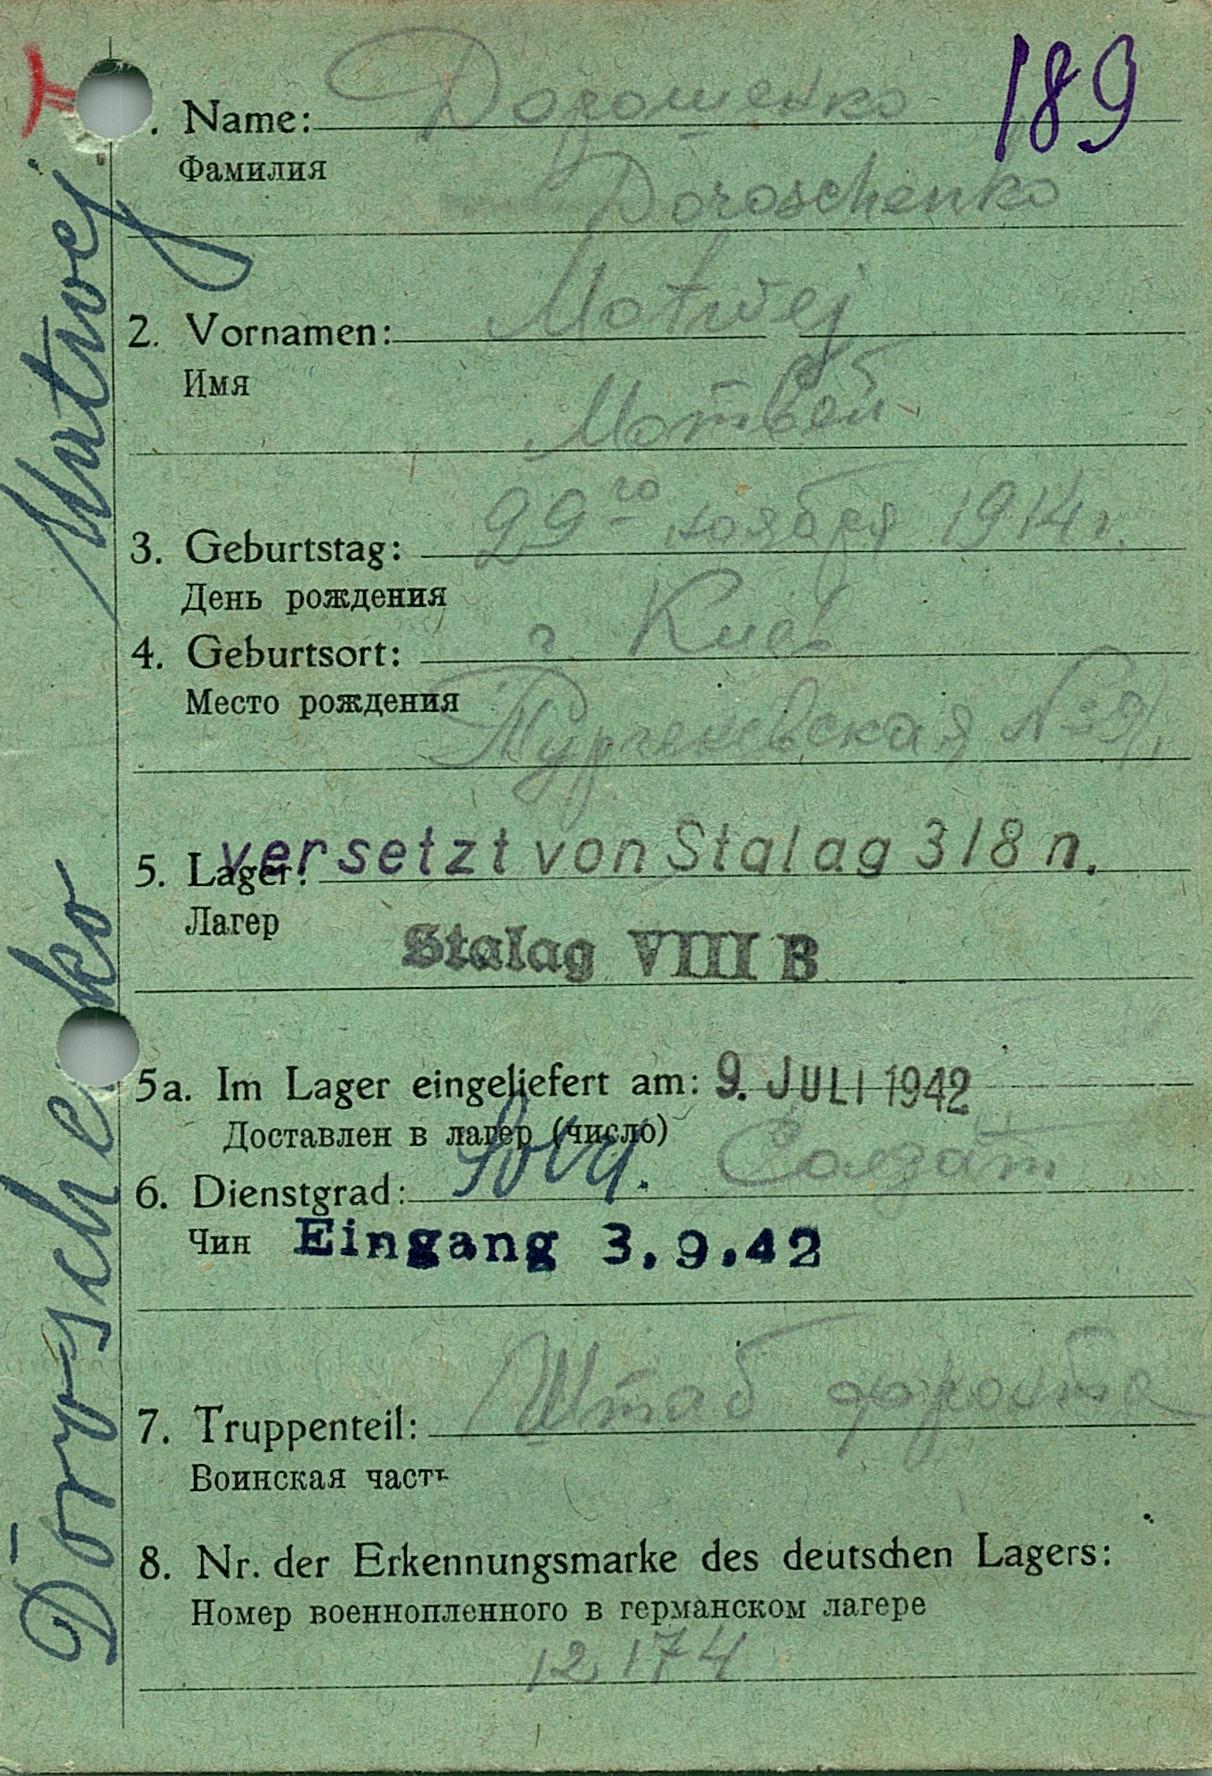 189
. Name: Дорошенко
Фамилия
Doroschenko
2. Vornamen: Motwej
Имя
Мотвей
3. Geburtstag: 29го ноября 1914 г.
День рождения
4. Geburtsort: г. Киев
Место рождения
Тургеневская №
versetzt von Stalag 318 n.
5. Lager:
Лагер
Stalag VIII B
5a. Im Lager eingeliefert am: 9. JULI 1942
Доставлен в лагер (число)
6. Dienstgrad: Солдат
Чин
Eingang 3.9.42
7. Truppenteil: Штаб фронта
Воинская часть
8. Nr. der Erkennungsmarke des deutschen Lagers:
Номер военнопленного в германском лагере
12174
Doroschenko Matwej